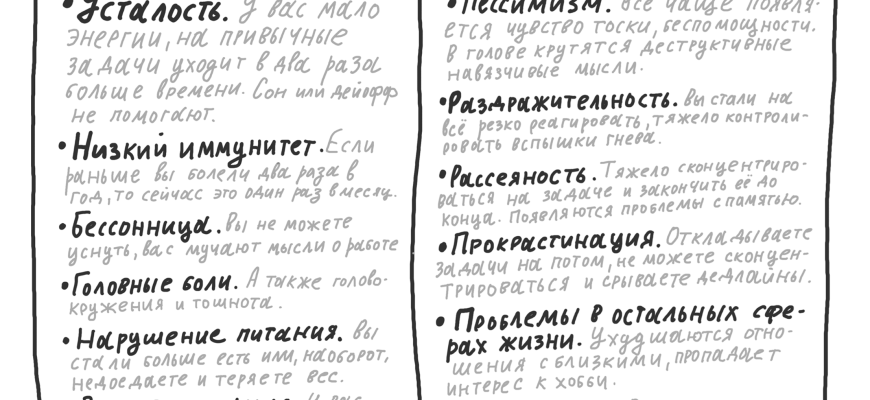 • Усталость. У вас мало
энергии, на привычные
задачи уходит в два раза
больше времени. Сон или дейофф
не помогают.
• Низкий иммунитет. Если
раньше вы болели два раза в
год, то сейчас это один раз в месяц.
• Бессонница. Вы не можете
уснуть, вас мучают мысли о работе
• Головные боли. А также голово-
кружения и тошнота.
• Нарушение питания. Вы
стали больше есть или, наоборот,
недоедаете и теряете вес.
• Пессимизм. Всё чаще появля-
ется чувство тоски, беспомощности.
В голове крутятся деструктивные
навязчивые мысли.
• Раздражительность. Вы стали на
всё резко реагировать, тяжело контроли-
ровать вспышки гнева.
• Рассеяность. Тяжело сконцентриро-
ваться на задаче и закончить её до
конца. Появляются проблемы с памятью.
• Прокрастинация. Откладываете
задачи на потом, не можете сконцен-
трироваться и срываете дедлайны.
• Проблемы в остальных сфе-
рах жизни. Ухудшаются отно-
шения с близкими, пропадает
интерес к хобби.